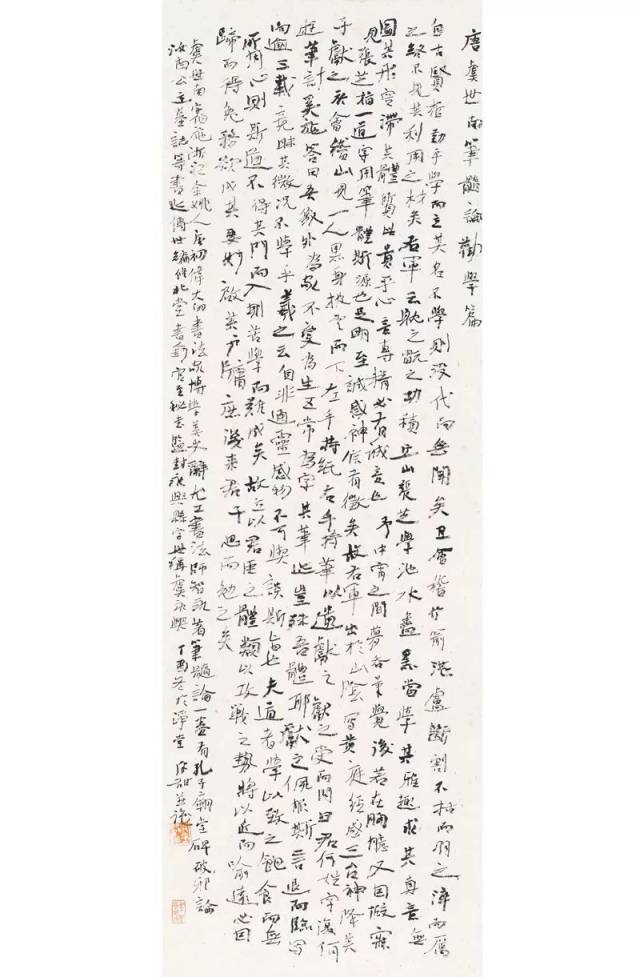 唐虞世南筆髓論勸學篇
自古賢哲勤乎學而立其名不學則沒代而無聞矣且會稽竹箭湛盧斷割不括而羽之淬而厲
之終不見其利用之材矣右軍云耽之翫之功積丘山張芝學池水盡黑當學其雅趣求其真意無
圖其形容滯其體質以貴乎心意專精必有誠應也予中宵之間夢吞筆覺後若在胸臆又因假寐
見張芝指一道字用筆體斯源也足明至誠感神信有徵矣故右軍出於山陰寫黃庭經感三台神降其
子獻之於會稽山見一人異身披雲而下左手持紙右手持筆以遺獻之獻之受而問曰君何姓字復何
遊筆計奚施答曰吾象外為家不變為姓五常為字其筆迹豈殊吾體耶獻之佩服斯言退而臨寫
向逾三載竟昧其微況不學乎羲之云自非通靈感物不可與談斯旨也夫道者學以致之飽食而無
所用心則斯道不得其門而入捌苦學而難成矣故立以君臣之體類以攻戰之勢將以近而喻遠必因
蹄而得兔務欲成其要妙啟其戶牖庶後來君子思而勉之矣
虞世南浙江余姚人唐初偉大的書法家博學善文辭尤工書法師智永著筆髓論一卷有孔子廟堂碑破邪論
汝南公主墓誌等書迹傳世編輯北堂書鈔官至秘書監封永興縣子世稱虞永興 丁酉冬於淨堂 並識